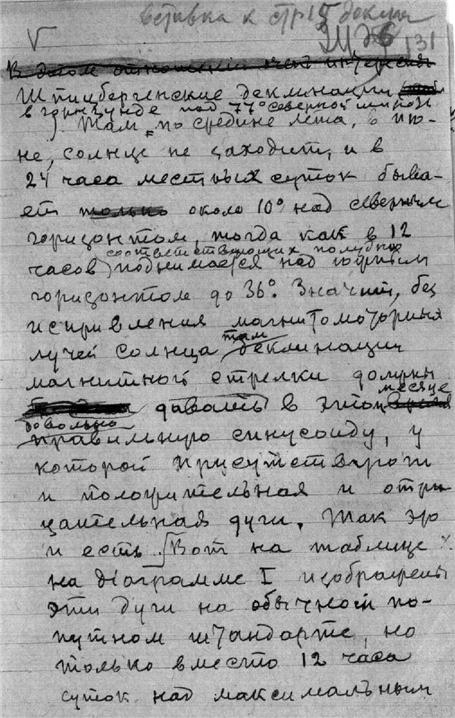 Вставка к стр 15 докум
V
131
В этом отношении очень интересны
Шпицбергенские деклинации
в Горнзунде под 77° северной широты
Там, по средине лета, в ию-
не, солнце не заходит, и в
24 часа местных суток быва-
ет только около 10° над северным
горизонтом, тогда как в 12
соответствующих полудню
часов поднимается над южным
горизонтом до 36°. Значит, без
искривления магнитомоторных
лучей солнца там деклинации
магнитной стрелки должны
давать в этом месяце
довольно
правильную синусоиду, у
которой присутствовали
и положительная и отри
цательная дуги. Так это
и есть. Вот на таблице
на диаграмме I изображены
эти дуги на обычном по-
путном штандарте, но
только вместо 12 часа
суток над максимальным